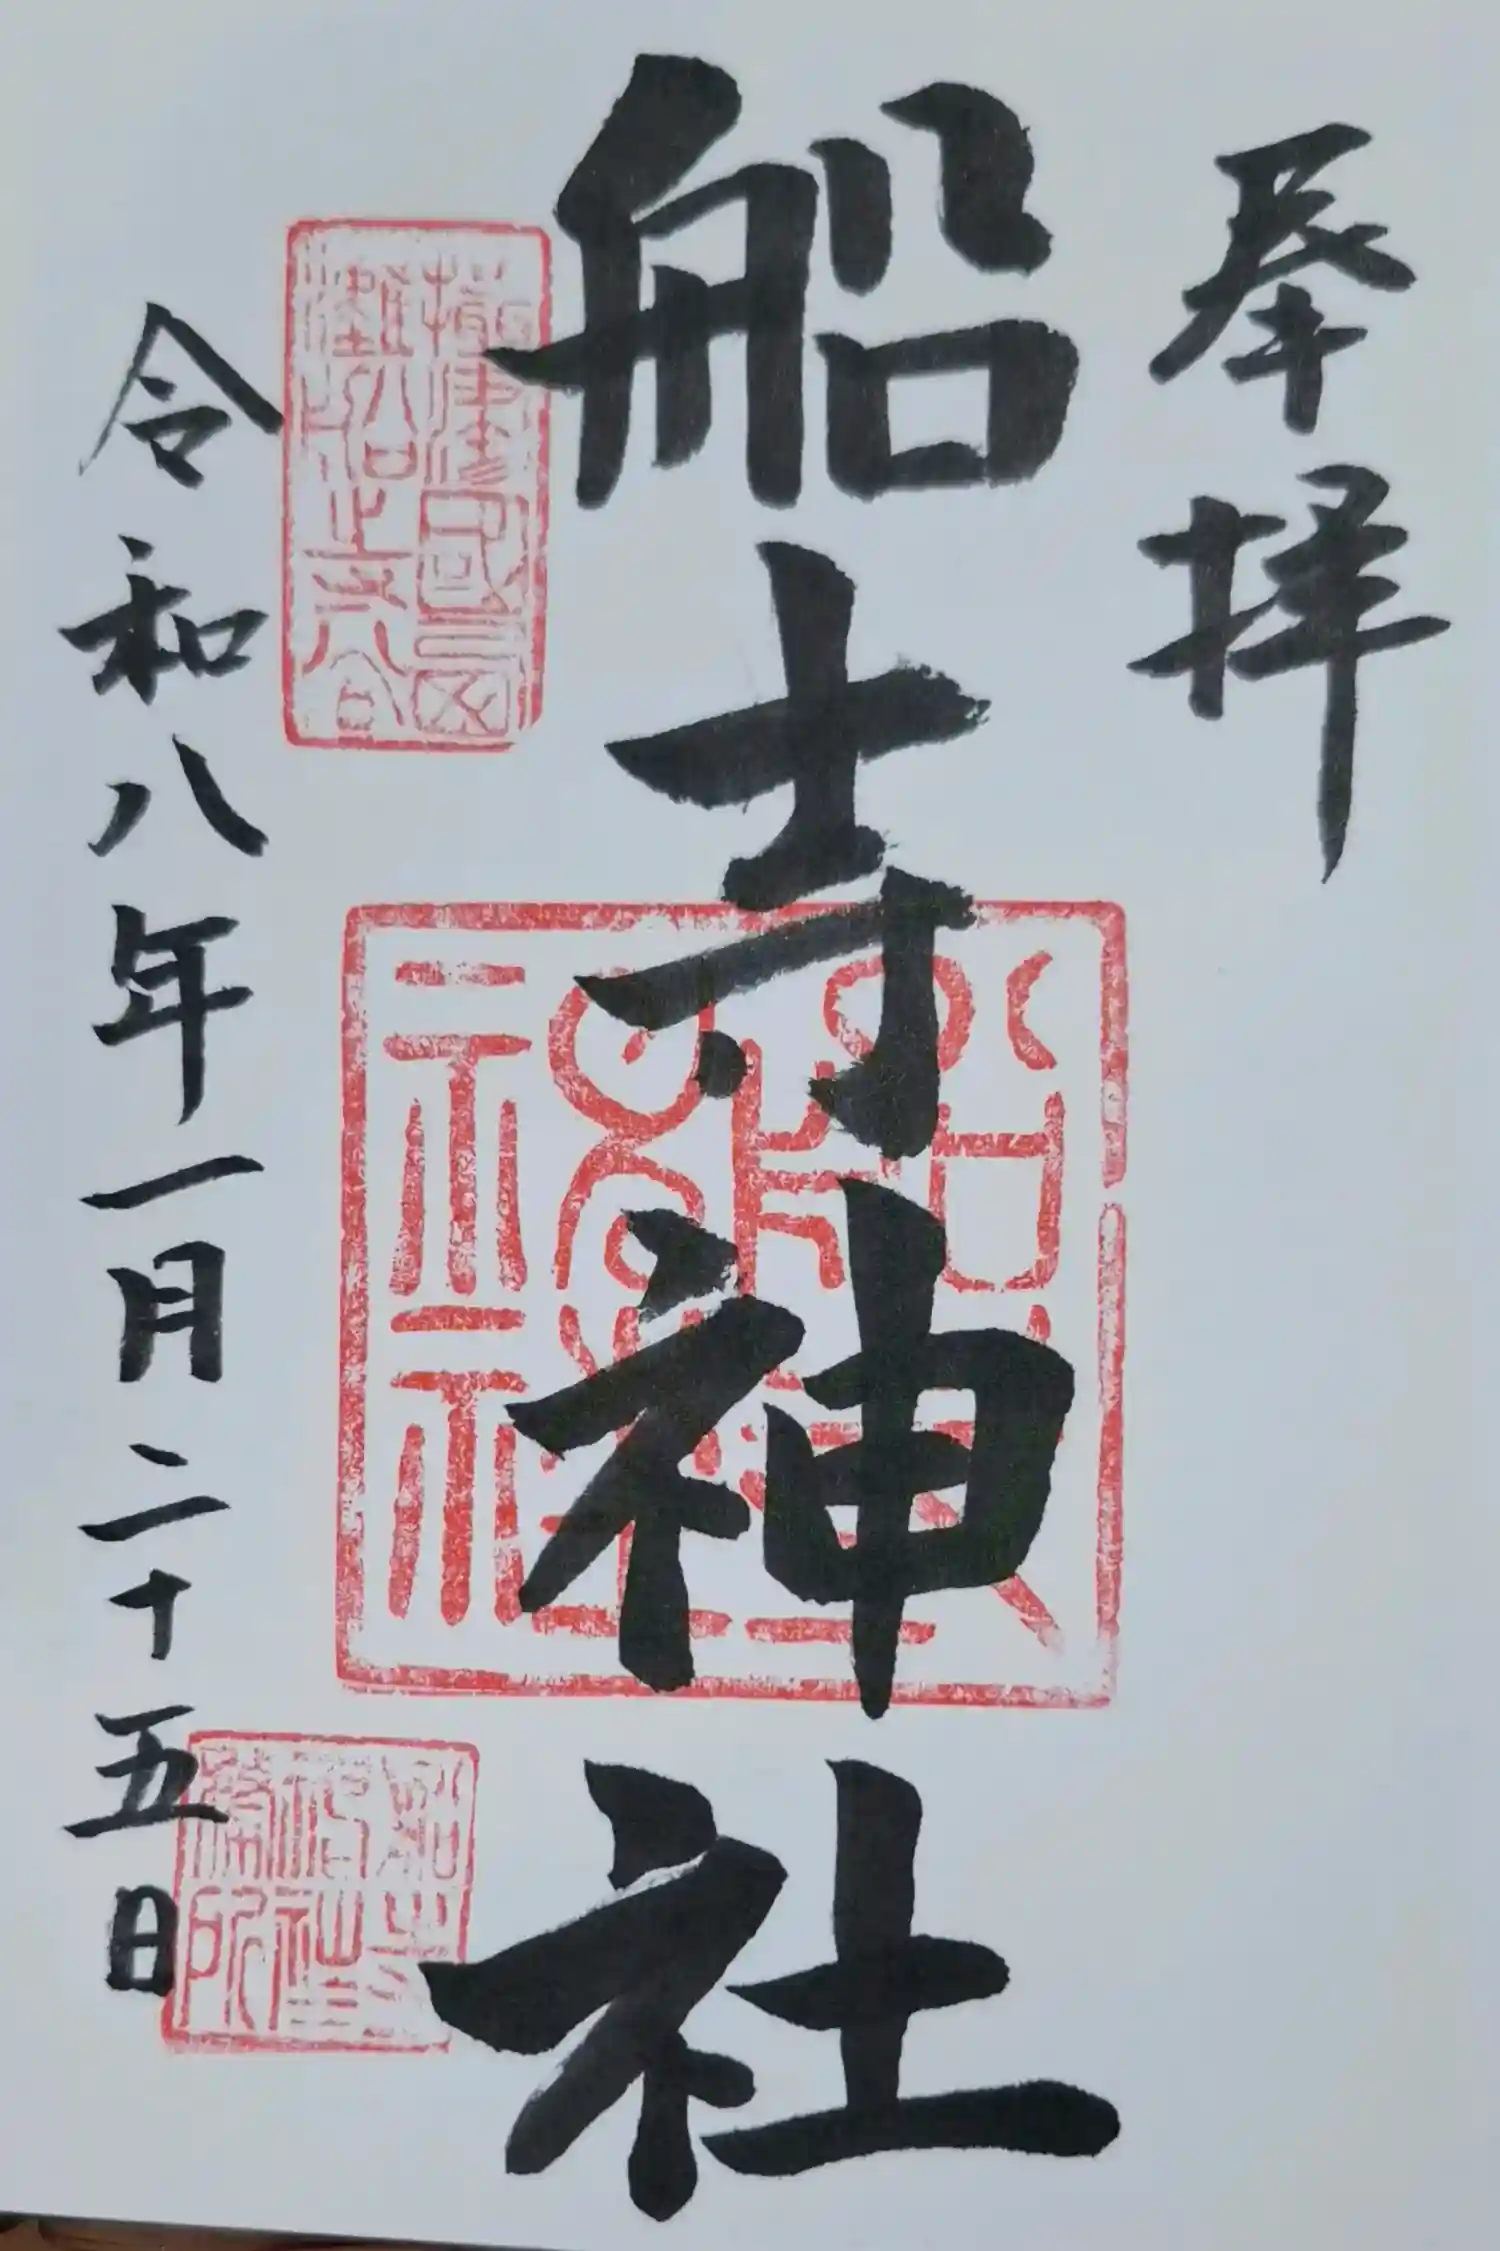 奉拝
船寺神社
令和八年一月二十五日
船寺神社